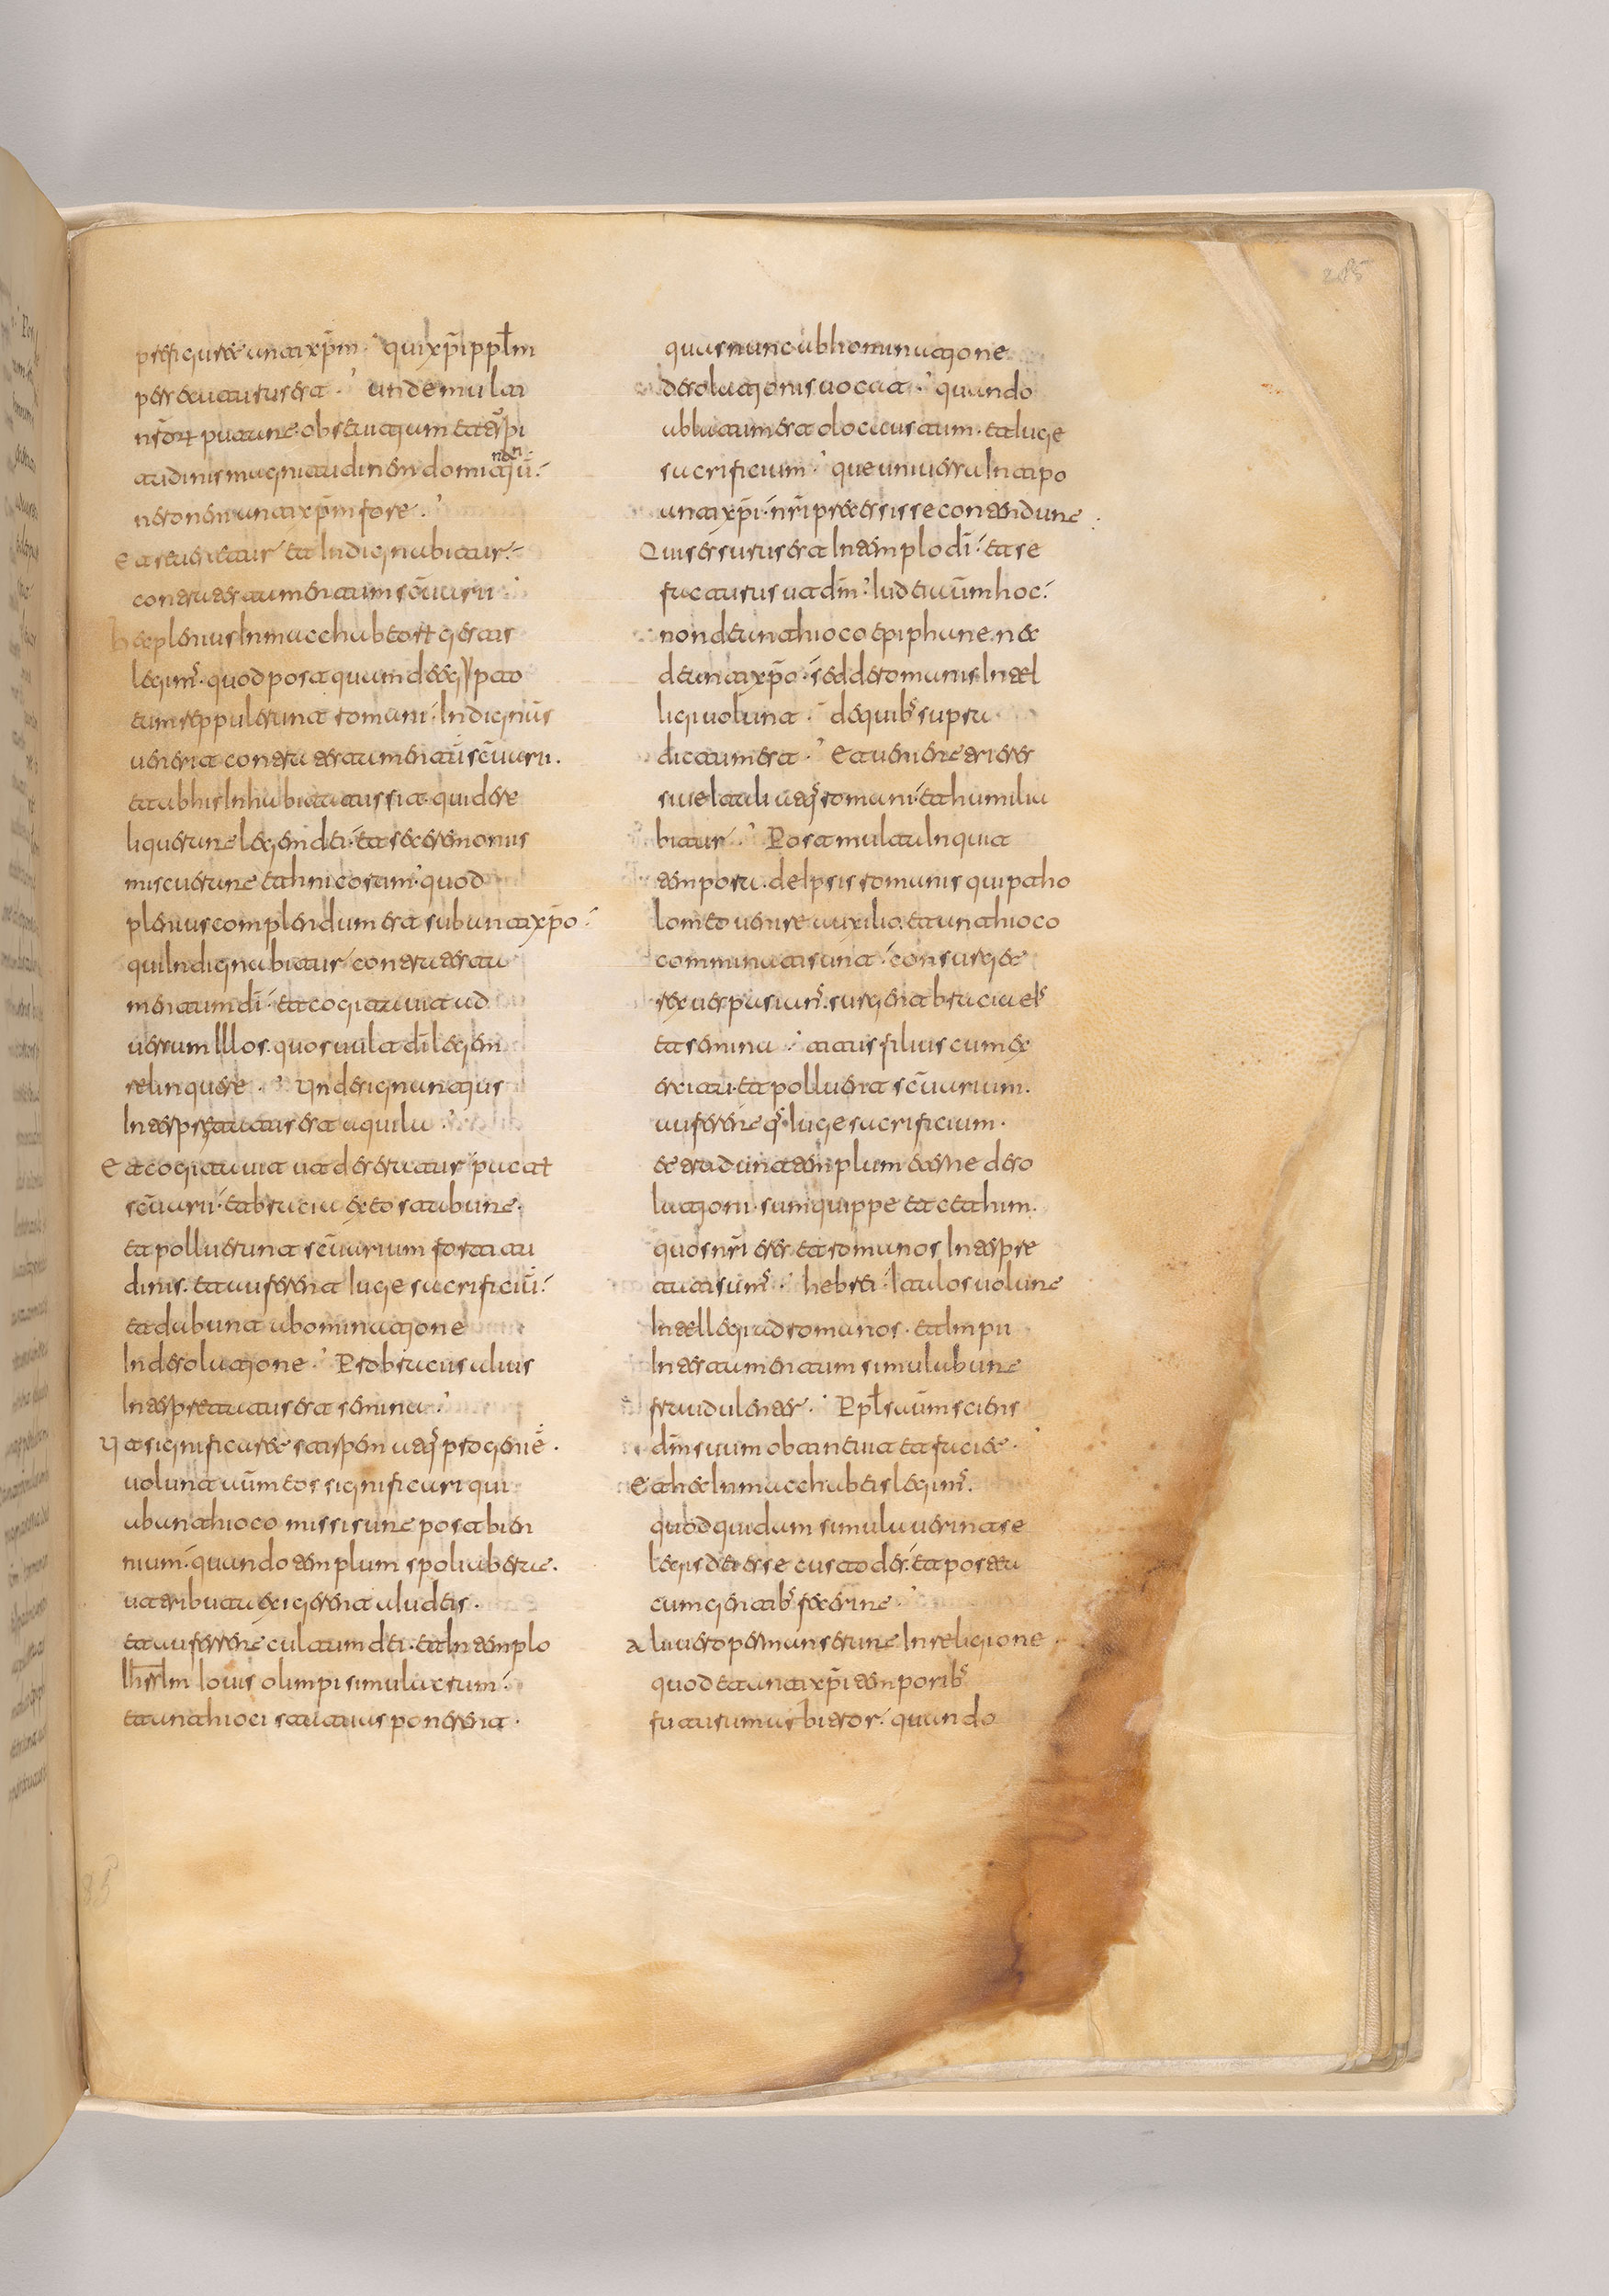 prefiguret antixp̄m. qui xp̄i pplm
persecuturus est. unde multi
nsōrt putant. ob seuitiam et turpi
tudinis magnitudinem domitiū.
neronem antixp̄m fore.
Et reuertetur et Indignabitur.
contra testamentum sc̄uarii.
hec plenius In maccabeort gestis
legims. quod postquam de egypto
eum reppulerunt romani. Indignās
uenerit contra testamentū sc̄uarii.
et ab his Inhabitatus sit qui dere
liquerunt legem dei. et se ceremoniis
miscuerunt ethnicorum. quod
plenius complendum est sub antixp̄o.
qui Indignabitur contra testa
mentum dī. et cogitauit ad
uersum Illos. quos uult dī legem
relinquere. Unde signantius
Interpretatus est aquila.
Et cogitauit ut deseratur pactt
sc̄uarii. et bracia ex eo stabunt.
et polluerunt sc̄uarium fortitu
dinis. et auferent iuge sacrificiū.
et dabunt abominatione
In desolatione. Pro bracis alius
Interpretatus est semina.
Ut significaret stirpem atq progeniē.
uolunt aūm eos significari qui
ab antioco missi sunt post bien
nium. quando templum spoliaberat.
ut tributa exigerent a Iudeis.
et auferrent cultum dei. et In templo
Ihsrlm Iouis olimpi simulacrum.
et antioci statuas ponerent.
quas nunc abhominatione
desolationis uocat. quando
ablatum est olocaustum. et iuge
sacrificium. que uniuersa In tipo
antixp̄i. nr̄i precessisse contendunt.
Qui sessurus est In templo dī. et se
facturus ut dm̄. Iudei aūm hoc.
non de antioco epiphane. nec
de antixp̄o. sed de romanis Intel
ligi uolunt. de quibs supra
dictum est. Et uenient trieres
siue Itali atq romani. et humilia
bitur. Post multa Inquit
tempora. de Ipsis romanis qui ptho
lomeo uenire auxilio. et antioco
comminati sunt. consurget
rex uespasians. surgent bracia eIs
et semina. titus filius cum ex
ercitu. et polluent sc̄uarium.
auferent qs Iuge sacrificium.
et tradunt templum eterne deso
lationi. siim quippe et cethim.
quos nr̄i eres et romanos Interpre
tati sums. hebrei Italos uolunt
Intellegi ad romanos. et Impii
In testamentum simulabunt
fraudulenter. Ppls aūm sciens
dm̄ suum obtinebit et faciet.
Et hec In maccabeis legims.
quod quidam simulauerint se
legis dei esse custodes. et postea
cum gentibs fecerint.
alii uero permanserunt In religione
quod et antixp̄i temporibs
futurum arbitror. quando